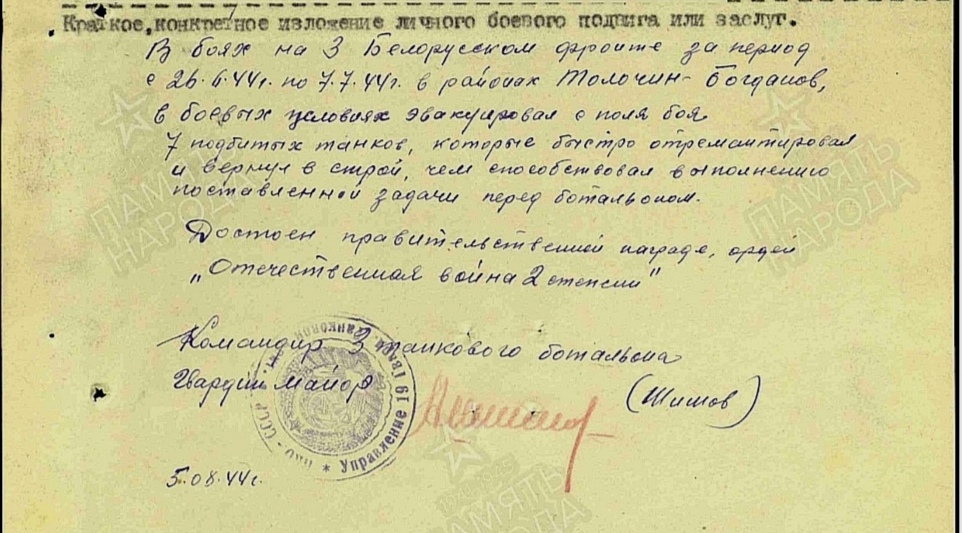 Краткое, конкретное изложение личного боевого подвига или заслуг.
В боях на 3 Белорусском фронте за период
с 26.6.44г. по 7.7.44г. в районах Толочин - Богданов,
в боевых условиях эвакуировал с поля боя
7 подбитых танков, которые быстро отремантировал
и вернул в строй, чем способствовал выполнению
поставленной задачи перед ботальоном.
Достоен правительственной награде, орден
„Отечественная война 2 степени"
Командир 3 танкового ботальона
Гвардии майор
(Шишов)
5.08.44г.
Управление 19 Гвард. Танковой
НКО - СССР
ПАМЯТЬ НАРОДА
ПАМЯТЬ НАРОДА
ПАМЯТЬ НАРОДА
ПАМЯТЬ НАРОДА